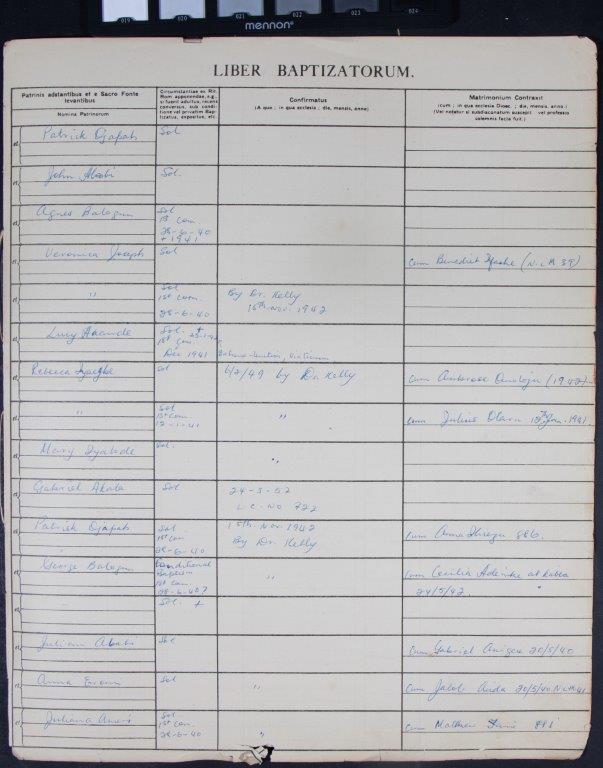 019 020 021 022 023 024
mennon
LIBER BAPTIZATORUM.
Patrinis adstantibus et e Sacro Fonte
levantibus
Nomina Patrinorum
Circumstantiae ex Rit.
Rom. apponendae, e.g.,
si fuerit adultus, recens
conversus, sub condi-
tione vel privatim Bap-
tizatus, expositus, etc.
Confirmatus
(A quo ; in qua ecclesia ; die, mensis, anno)
Matrimonium Contraxit
(cum ; in qua ecclesia Dioec. ; die, mensis, anno.)
(Vel notatur si subdiaconatum suscepit vel professio
solemnis facta fuit.)
Patrick Ojapah Sol
John Sol.
Agnes Balogun Sol
1st Com.
28-6-40
+ 1941
Veronica Joseph Sol
cum Benedict (N.L.M 39)
" Sol
1st Com.
28-6-40
By Dr. Kelly
15th Nov. 1942
Lucy Sol. +
1st Com.
Dec 1941
Rebecca Sol 6/2/49 by Dr Kelly cum Ambrose (1942)
" Sol
1st Com
12-1-41
" cum Julius 1941
Mary Sol. "
Gabriel Sol 24-5-52
L.C. No 722
Patrick Ojapah Sol
1st Com
28-6-40
15th Nov. 1942
By Dr. Kelly
cum Anna 886.
George Balogun Conditional
Baptism
1st Com.
28-6-40?
" cum Cecilia at Kabba
24/5/42.
Sol. +
Juliana Sol cum Gabriel 20/5/40
Anna Sol " cum Jacob 20/5/40 N.L.M. 41
Juliana Sol
1st Com.
28-6-40
" cum Matthew